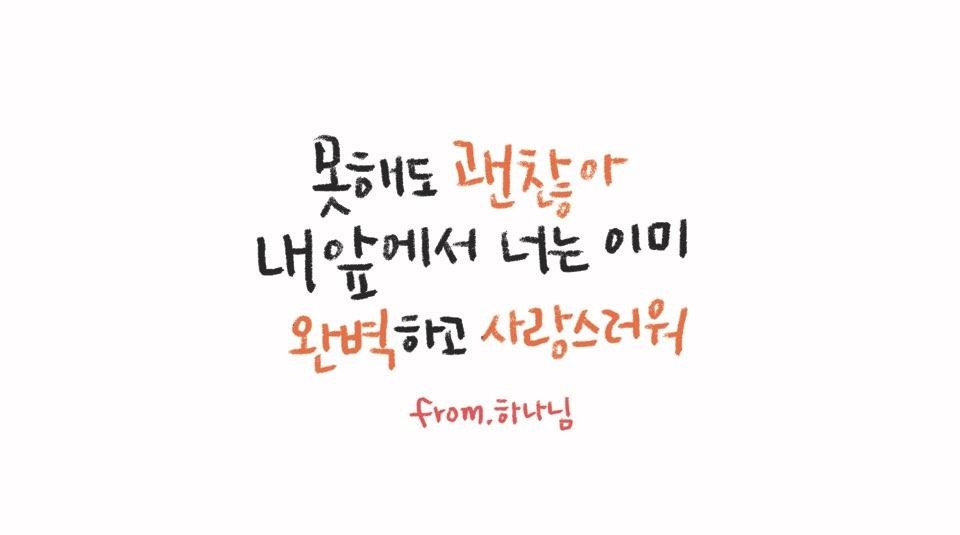 못해도 괜찮아
내 앞에서 너는 이미
완벽하고 사랑스러워
from.하나님